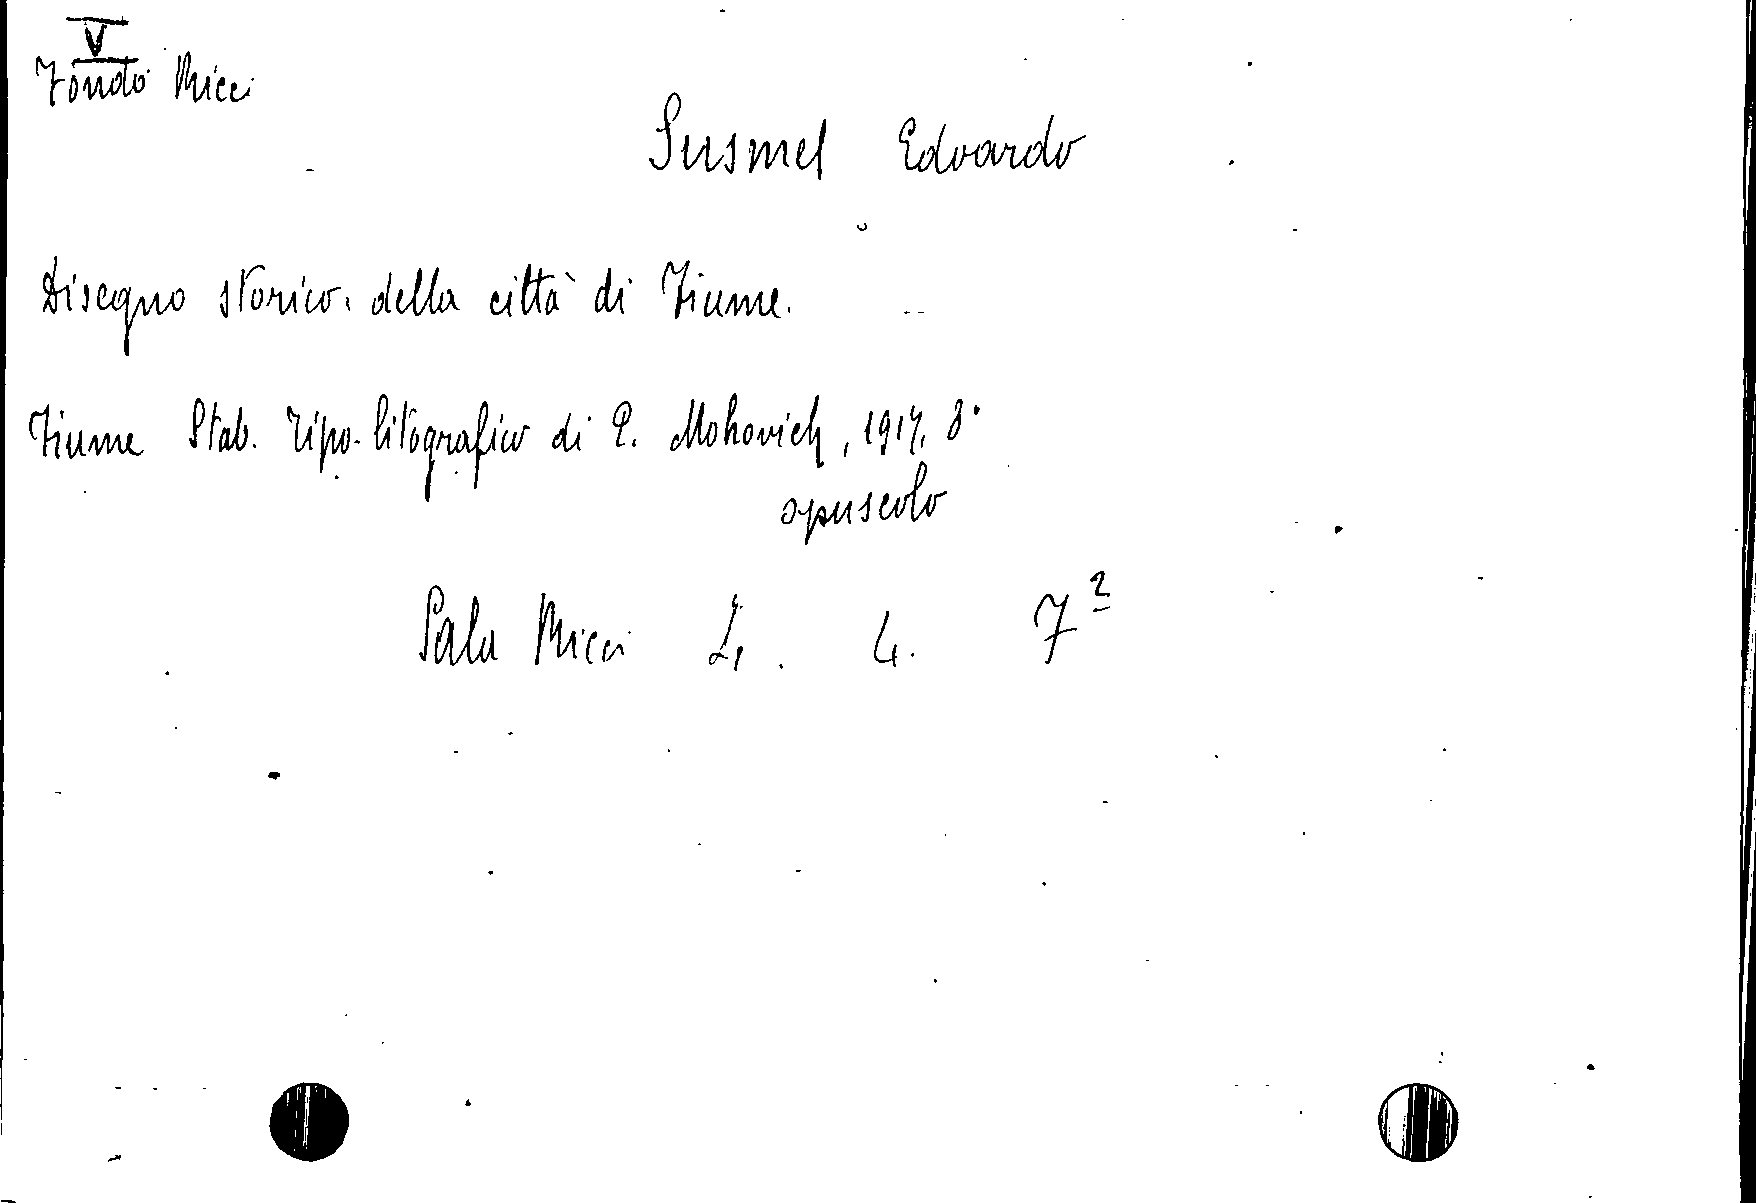 V
Fondo Ricci
Susmel Edoardo
Disegno storico della città di Fiume.
Fiume Stab. Tipo-litografico di E. Mohovich, 1917, 8°
opuscolo
Sala Ricci L. 4. 7²